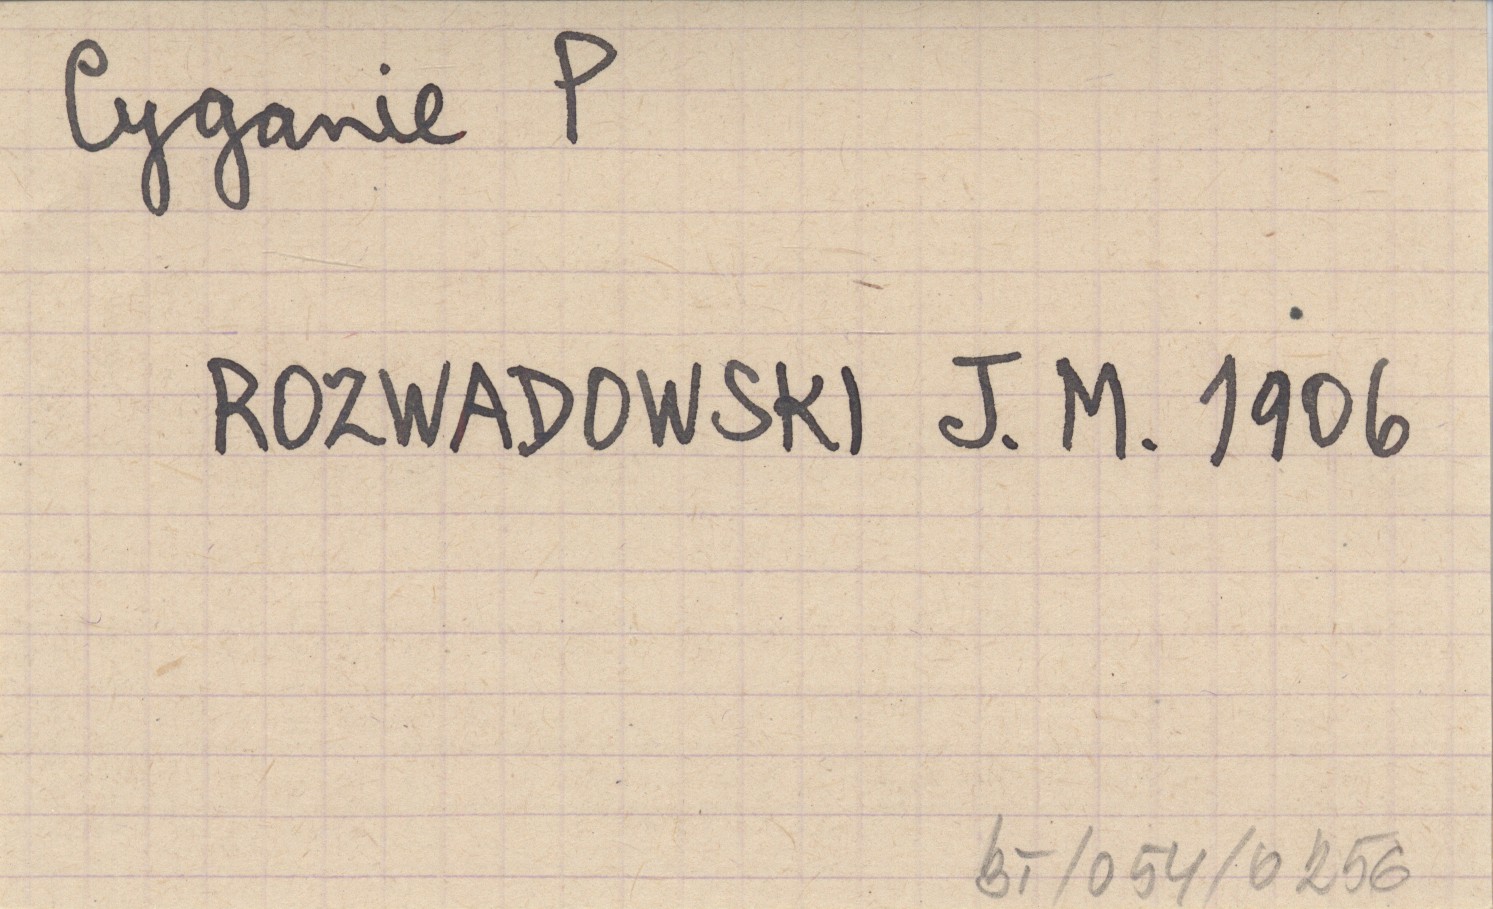 Cyganie P
ROZWADOWSKI J. M. 1906
BT/054/0256